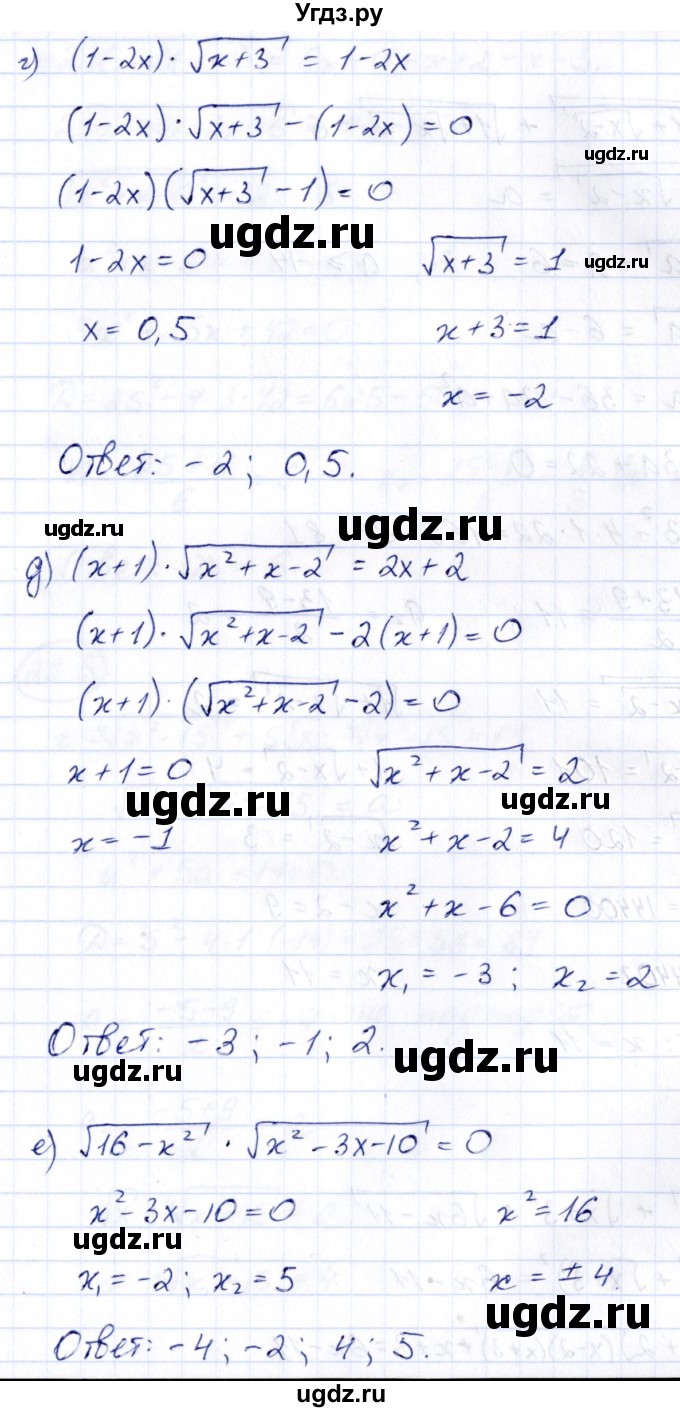 Угдз.ру
г) (1-2x)·√(x+3) = 1-2x
(1-2x)·√(x+3) - (1-2x) = 0
ugdz.ru
(1-2x)(√(x+3) - 1) = 0
ugdz.ru
1-2x = 0 √(x+3) = 1 ugdz.ru
x = 0,5 x+3 = 1
x = -2
Ответ: -2; 0,5.
ugdz.ru ugdz.ru
д) (x+1)·√(x²+x-2) = 2x+2
(x+1)·√(x²+x-2) - 2(x+1) = 0
(x+1)·(√(x²+x-2) - 2) = 0
x+1 = 0 √(x²+x-2) = 2
ugdz.ru ugdz.ru
x = -1 x²+x-2 = 4
x²+x-6 = 0
x₁ = -3; x₂ = 2
Ответ: -3; -1; 2.
ugdz.ru ugdz.ru
е) √(16-x²) · √(x²-3x-10) = 0
x²-3x-10 = 0 x² = 16
ugdz.ru
x₁ = -2; x₂ = 5 x = ±4
ugdz.ru
Ответ: -4; -2; 4; 5.
ugdz.ru